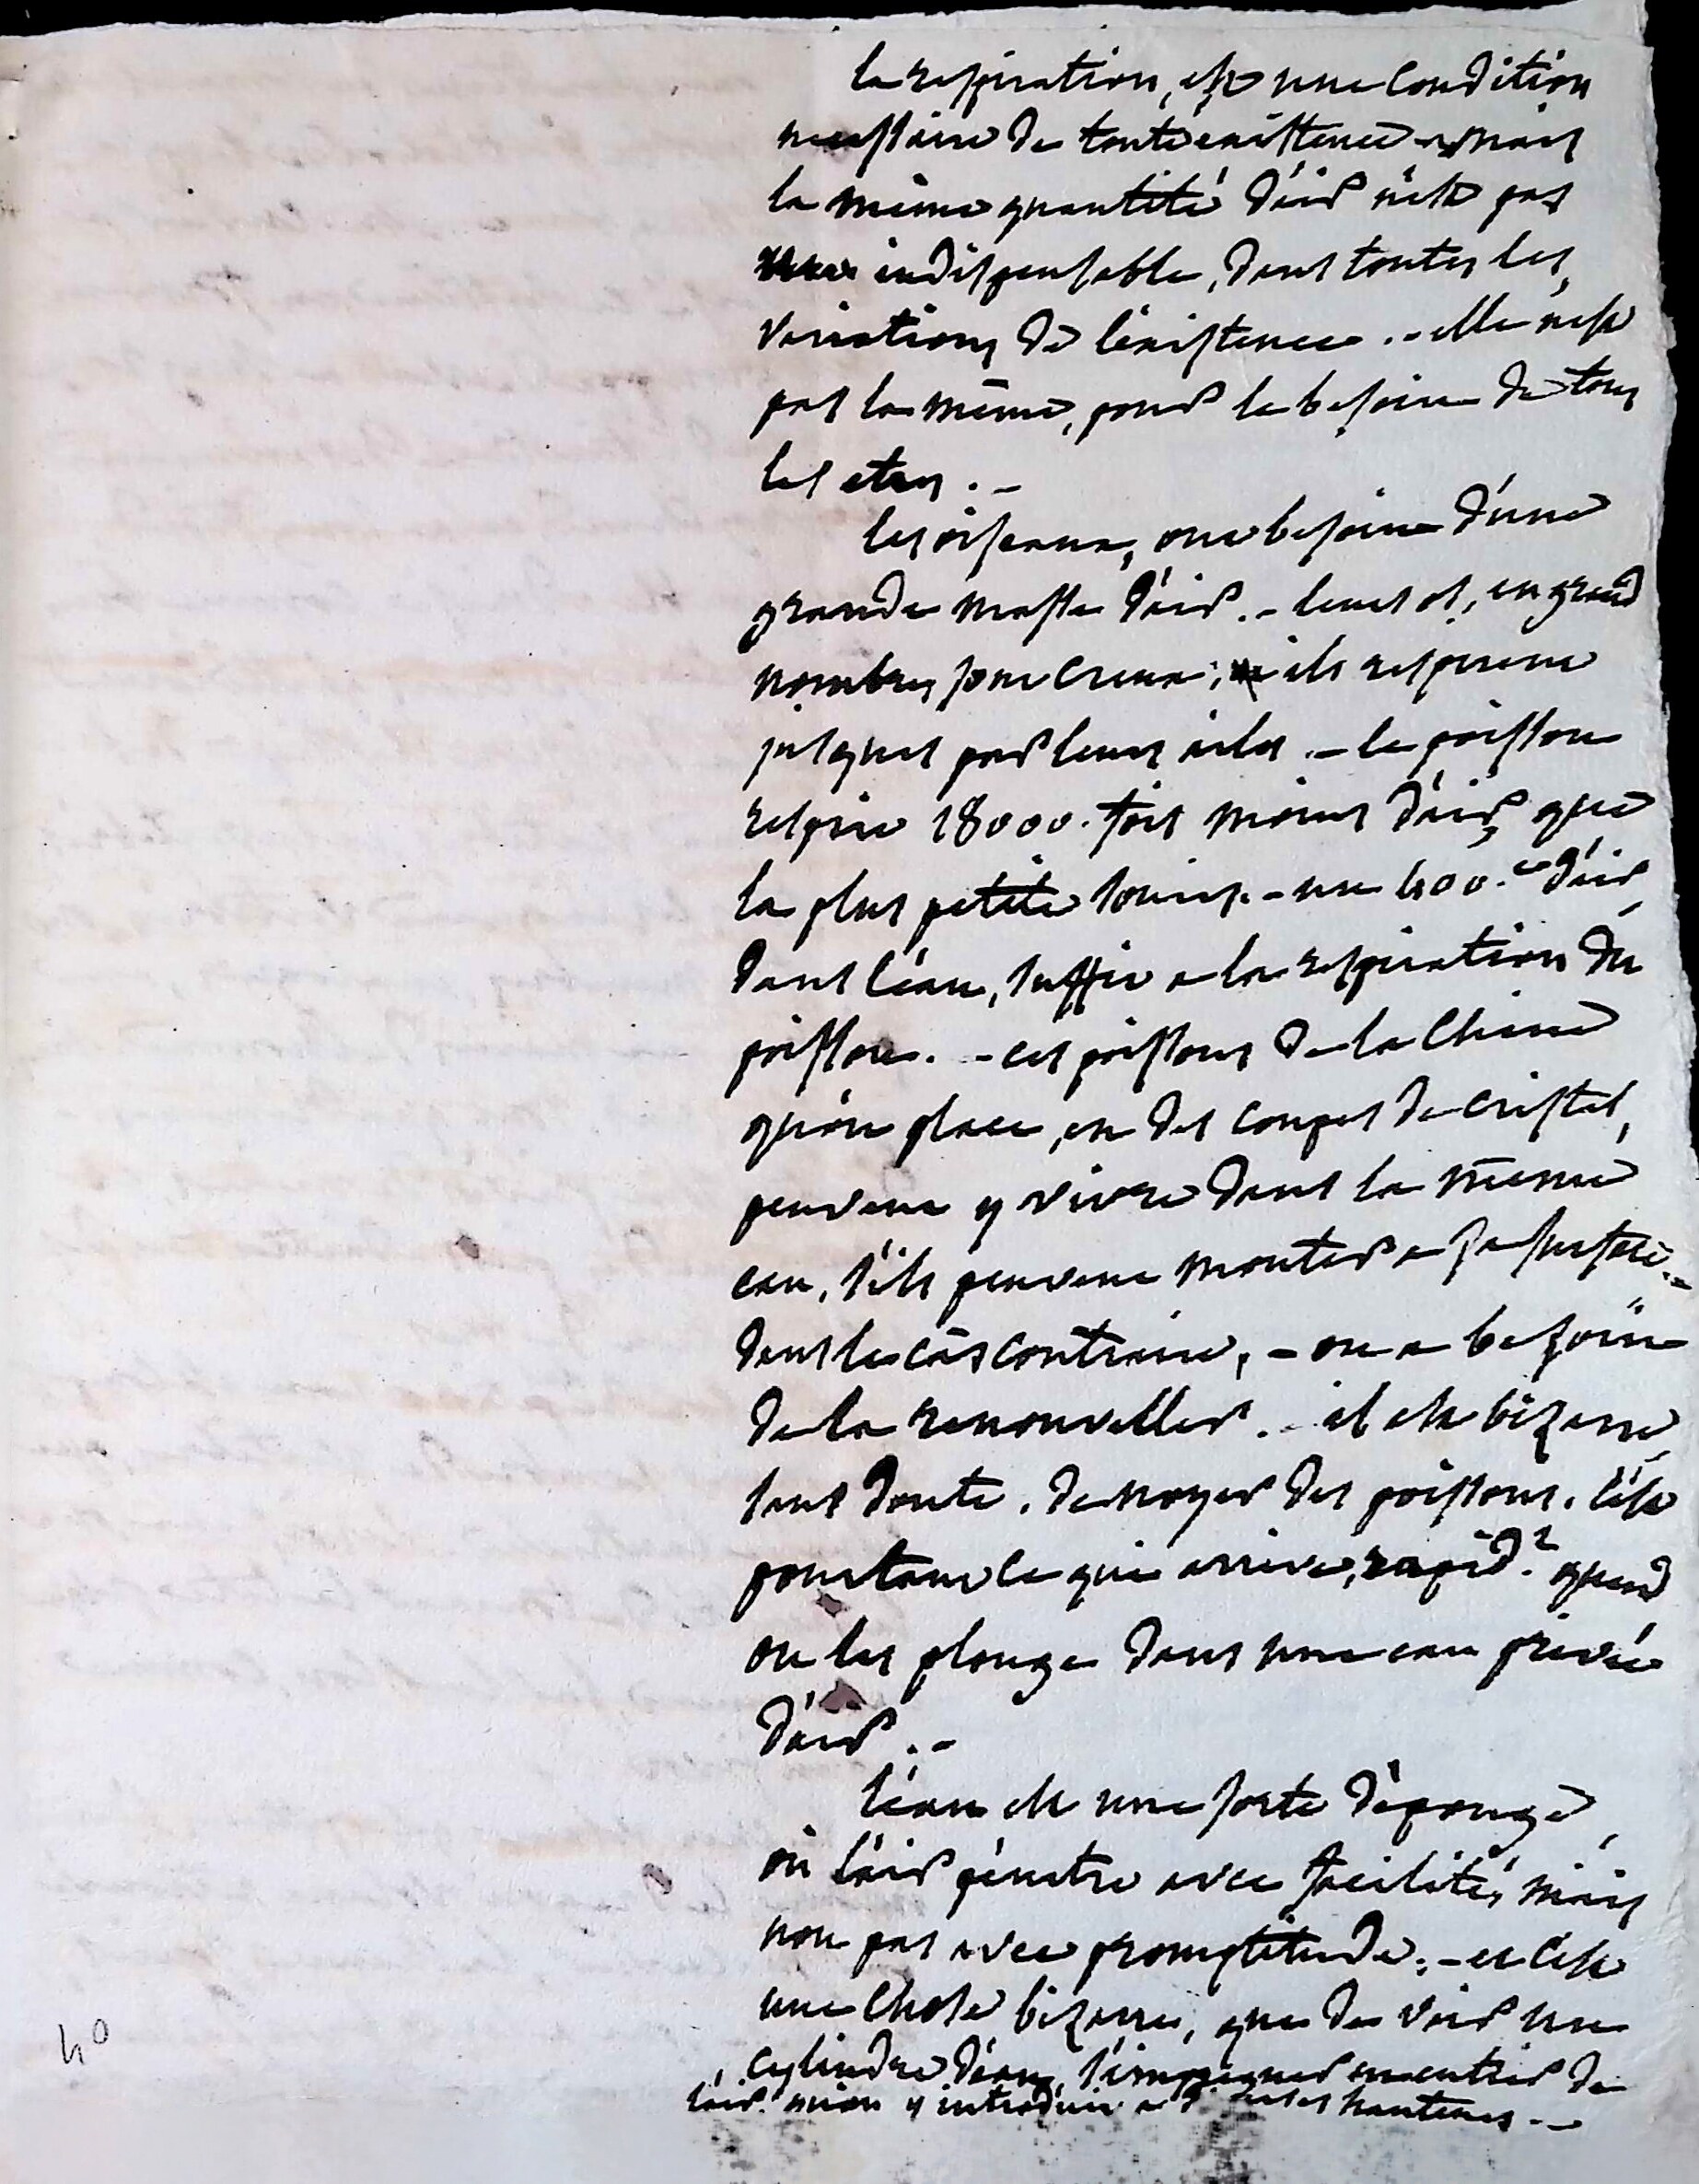 la respiration, est une condition
necessaire de toute existence - mais
la même quantité d'air n'est pas
indispensable, dans toutes les
variations de l'existence .- elle n'est
pas la même, pour le besoin de tous
les etres .-
les oiseaux, ont besoin d'une
grande masse d'air .- leurs os, en grand
nombre, sont creux; ils respirent
jusques par leurs ailes .- le poisson
respire 18000. fois moins d'air, que
la plus petite souris .- un 400.e d'air,
dans l'eau, suffit a la respiration du
poisson. - ces poissons de la Chine
qu'on place, en des coupes de cristal,
peuvent y vivre dans la même
eau, s'ils peuvent monter a sa surface.-
dans le cas contraire, - on a besoin
de la renouveller .- il est bizarre,
sans doute, de noyer des poissons. c'est
pourtant ce qui arrive, rapid.t quand
on les plonge dans une eau privée
d'air .-
l'eau est une sorte d'éponge,
où l'air pénètre avec facilité, mais
non pas avec promptitude .- et c'est
une chose bizarre, que de voir un
cylindre d'eau, s'impregner en entier de
l'air qu'on y introduit a hauteurs .-
40